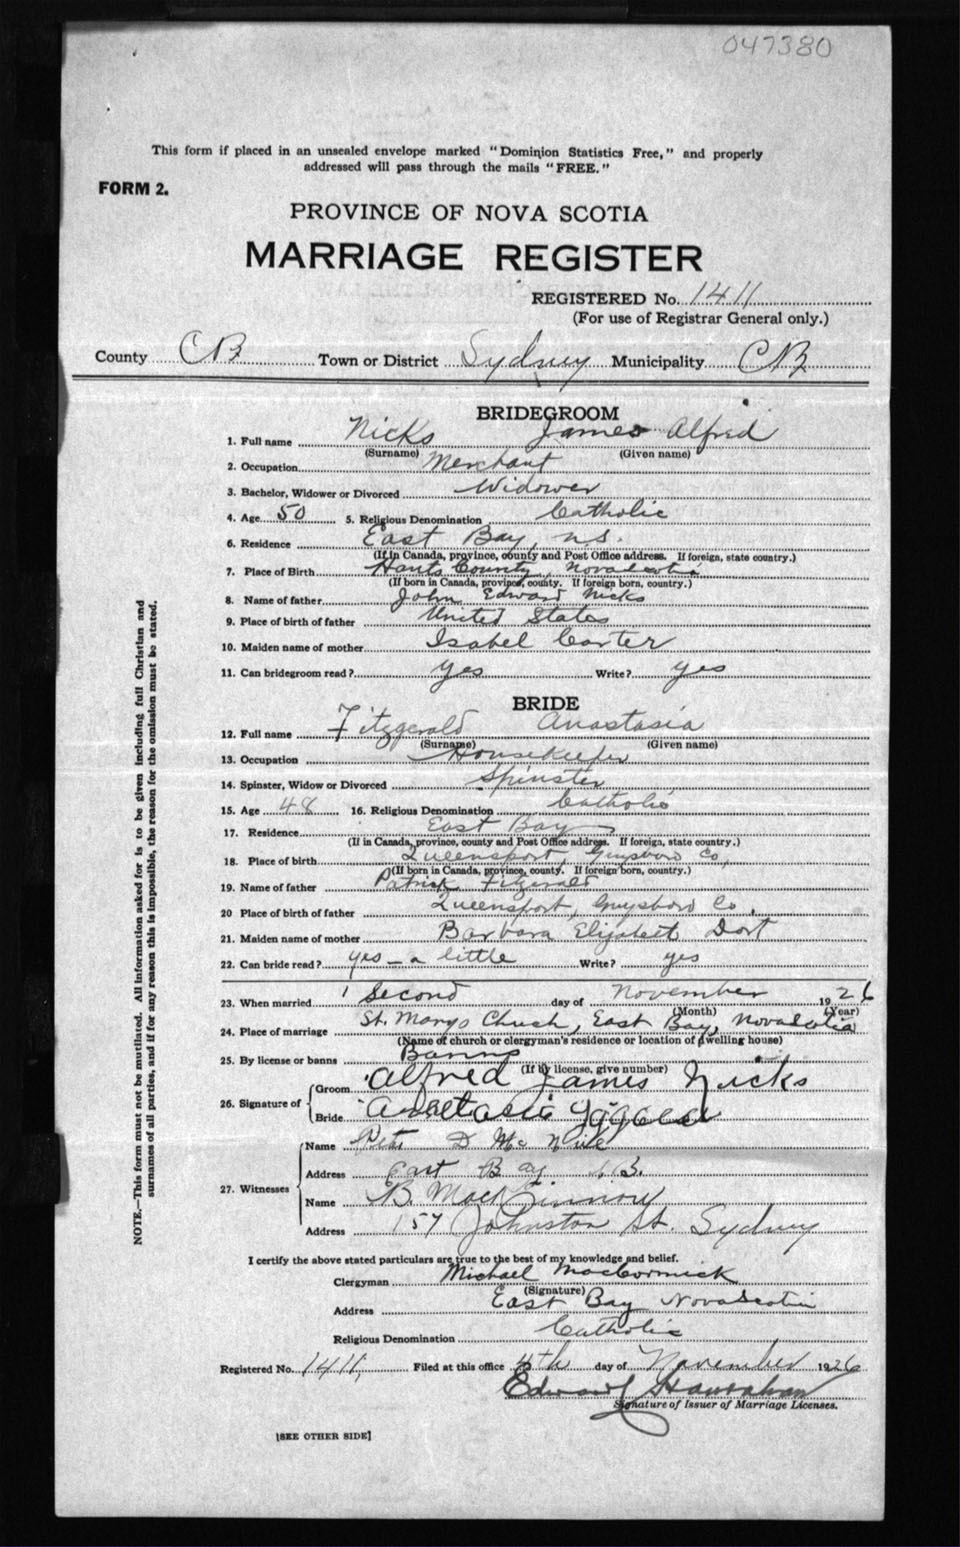 047380
This form if placed in an unsealed envelope marked "Dominion Statistics Free," and properly
addressed will pass through the mails "FREE."
FORM 2.
PROVINCE OF NOVA SCOTIA
MARRIAGE REGISTER
REGISTERED No. 1411
(For use of Registrar General only.)
County CB Town or District Sydney Municipality CB
BRIDEGROOM
1. Full name Nicks James Alfred
(Surname) (Given name)
2. Occupation Merchant
3. Bachelor, Widower or Divorced Widower
4. Age 50 5. Religious Denomination Catholic
6. Residence East Bay, N.S.
(If in Canada, province, county and Post Office address. If foreign, state country.)
7. Place of Birth Hants County, Nova Scotia
(If born in Canada, province, county. If foreign born, country.)
8. Name of father John Edward Nicks
9. Place of birth of father United States
10. Maiden name of mother Isabel Carter
11. Can bridegroom read? Yes Write? yes
BRIDE
12. Full name Fitzgerald Anastasia
(Surname) (Given name)
13. Occupation Housekeeper
14. Spinster, Widow or Divorced Spinster
15. Age 48 16. Religious Denomination Catholic
17. Residence East Bay
(If in Canada, province, county and Post Office address. If foreign, state country.)
18. Place of birth Queensport, Guysboro Co,
(If born in Canada, province, county. If foreign born, country.)
19. Name of father Patrick Fitzgerald
20 Place of birth of father Queensport, Guysboro Co.
21. Maiden name of mother Barbara Elizabeth Dort
22. Can bride read? yes - a little Write? yes
23. When married Second day of November 1926
(Month) (Year)
24. Place of marriage St. Marys Church, East Bay, Nova Scotia
(Name of church or clergyman's residence or location of dwelling house)
25. By license or banns Banns
(If by license, give number)
26. Signature of Groom Alfred James Nicks
Bride
27. Witnesses Name Peter D Mc
Address East Bay
Name B. MacKinnon
Address 157 Johnston St. Sydney
I certify the above stated particulars are true to the best of my knowledge and belief.
Clergyman Michael MacCormick
(Signature)
Address East Bay Nova Scotia
Religious Denomination Catholic
Registered No. 1411, Filed at this office 4th day of November 1926
Edward Hanrahan
Signature of Issuer of Marriage Licenses.
[SEE OTHER SIDE]
NOTE.—This form must not be mutilated. All information asked for is to be given including full Christian and
surnames of all parties, and if for any reason this is impossible, the reason for the omission must be stated.